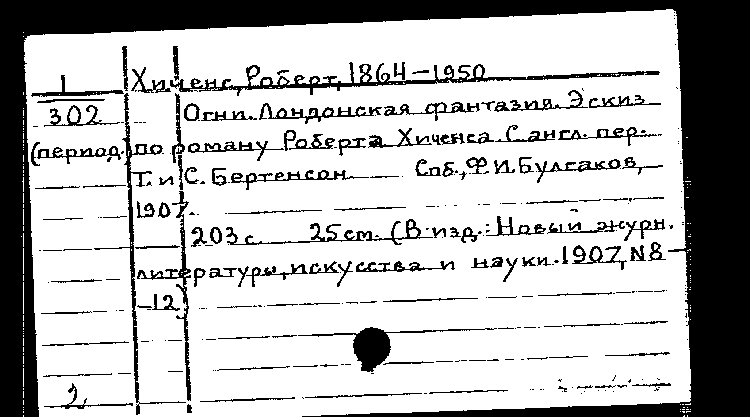 1 Хиченс, Роберт, 1864-1950
302 Огни. Лондонская фантазия. Эскиз
(период.) по роману Роберта Хиченса. С англ. пер.
Т. и С. Бертенсон. Спб., Ф.И. Булгаков,
1907.
203 с. 25 см. (В изд.: Новый журн.
литературы, искусства и науки. 1907, N8-
-12)
2